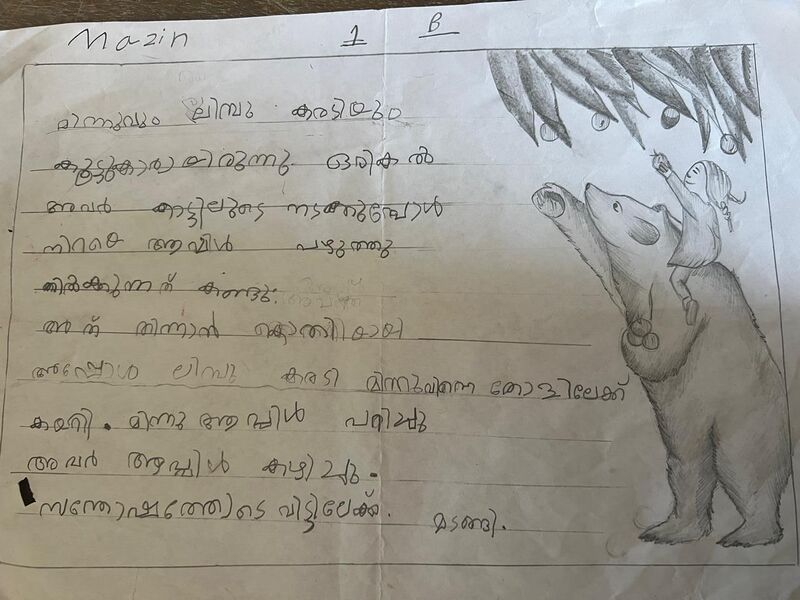 Mazin 1 B
മിന്നുവും ലിമ്പു കരടിയും
കൂട്ടുകാരായിരുന്നു ഒരികൽ
അവർ കാട്ടിലുടെ നടക്കുമ്പോൾ
നിറയെ ആപ്പിൾ പഴുത്തു
നിൽക്കുന്നത് കണ്ടു.
അത് തിന്നാൻ കൊതിയായി
അപ്പോൾ ലിമ്പു കരടി മിന്നുവിനെ തോളിലേക്ക്
കയറ്റി. മിന്നു ആപ്പിൾ പറിച്ചു
അവർ ആപ്പിൾ കഴിച്ചു.
സന്തോഷത്തോടെ വിട്ടിലേക്ക്. മടങ്ങി.